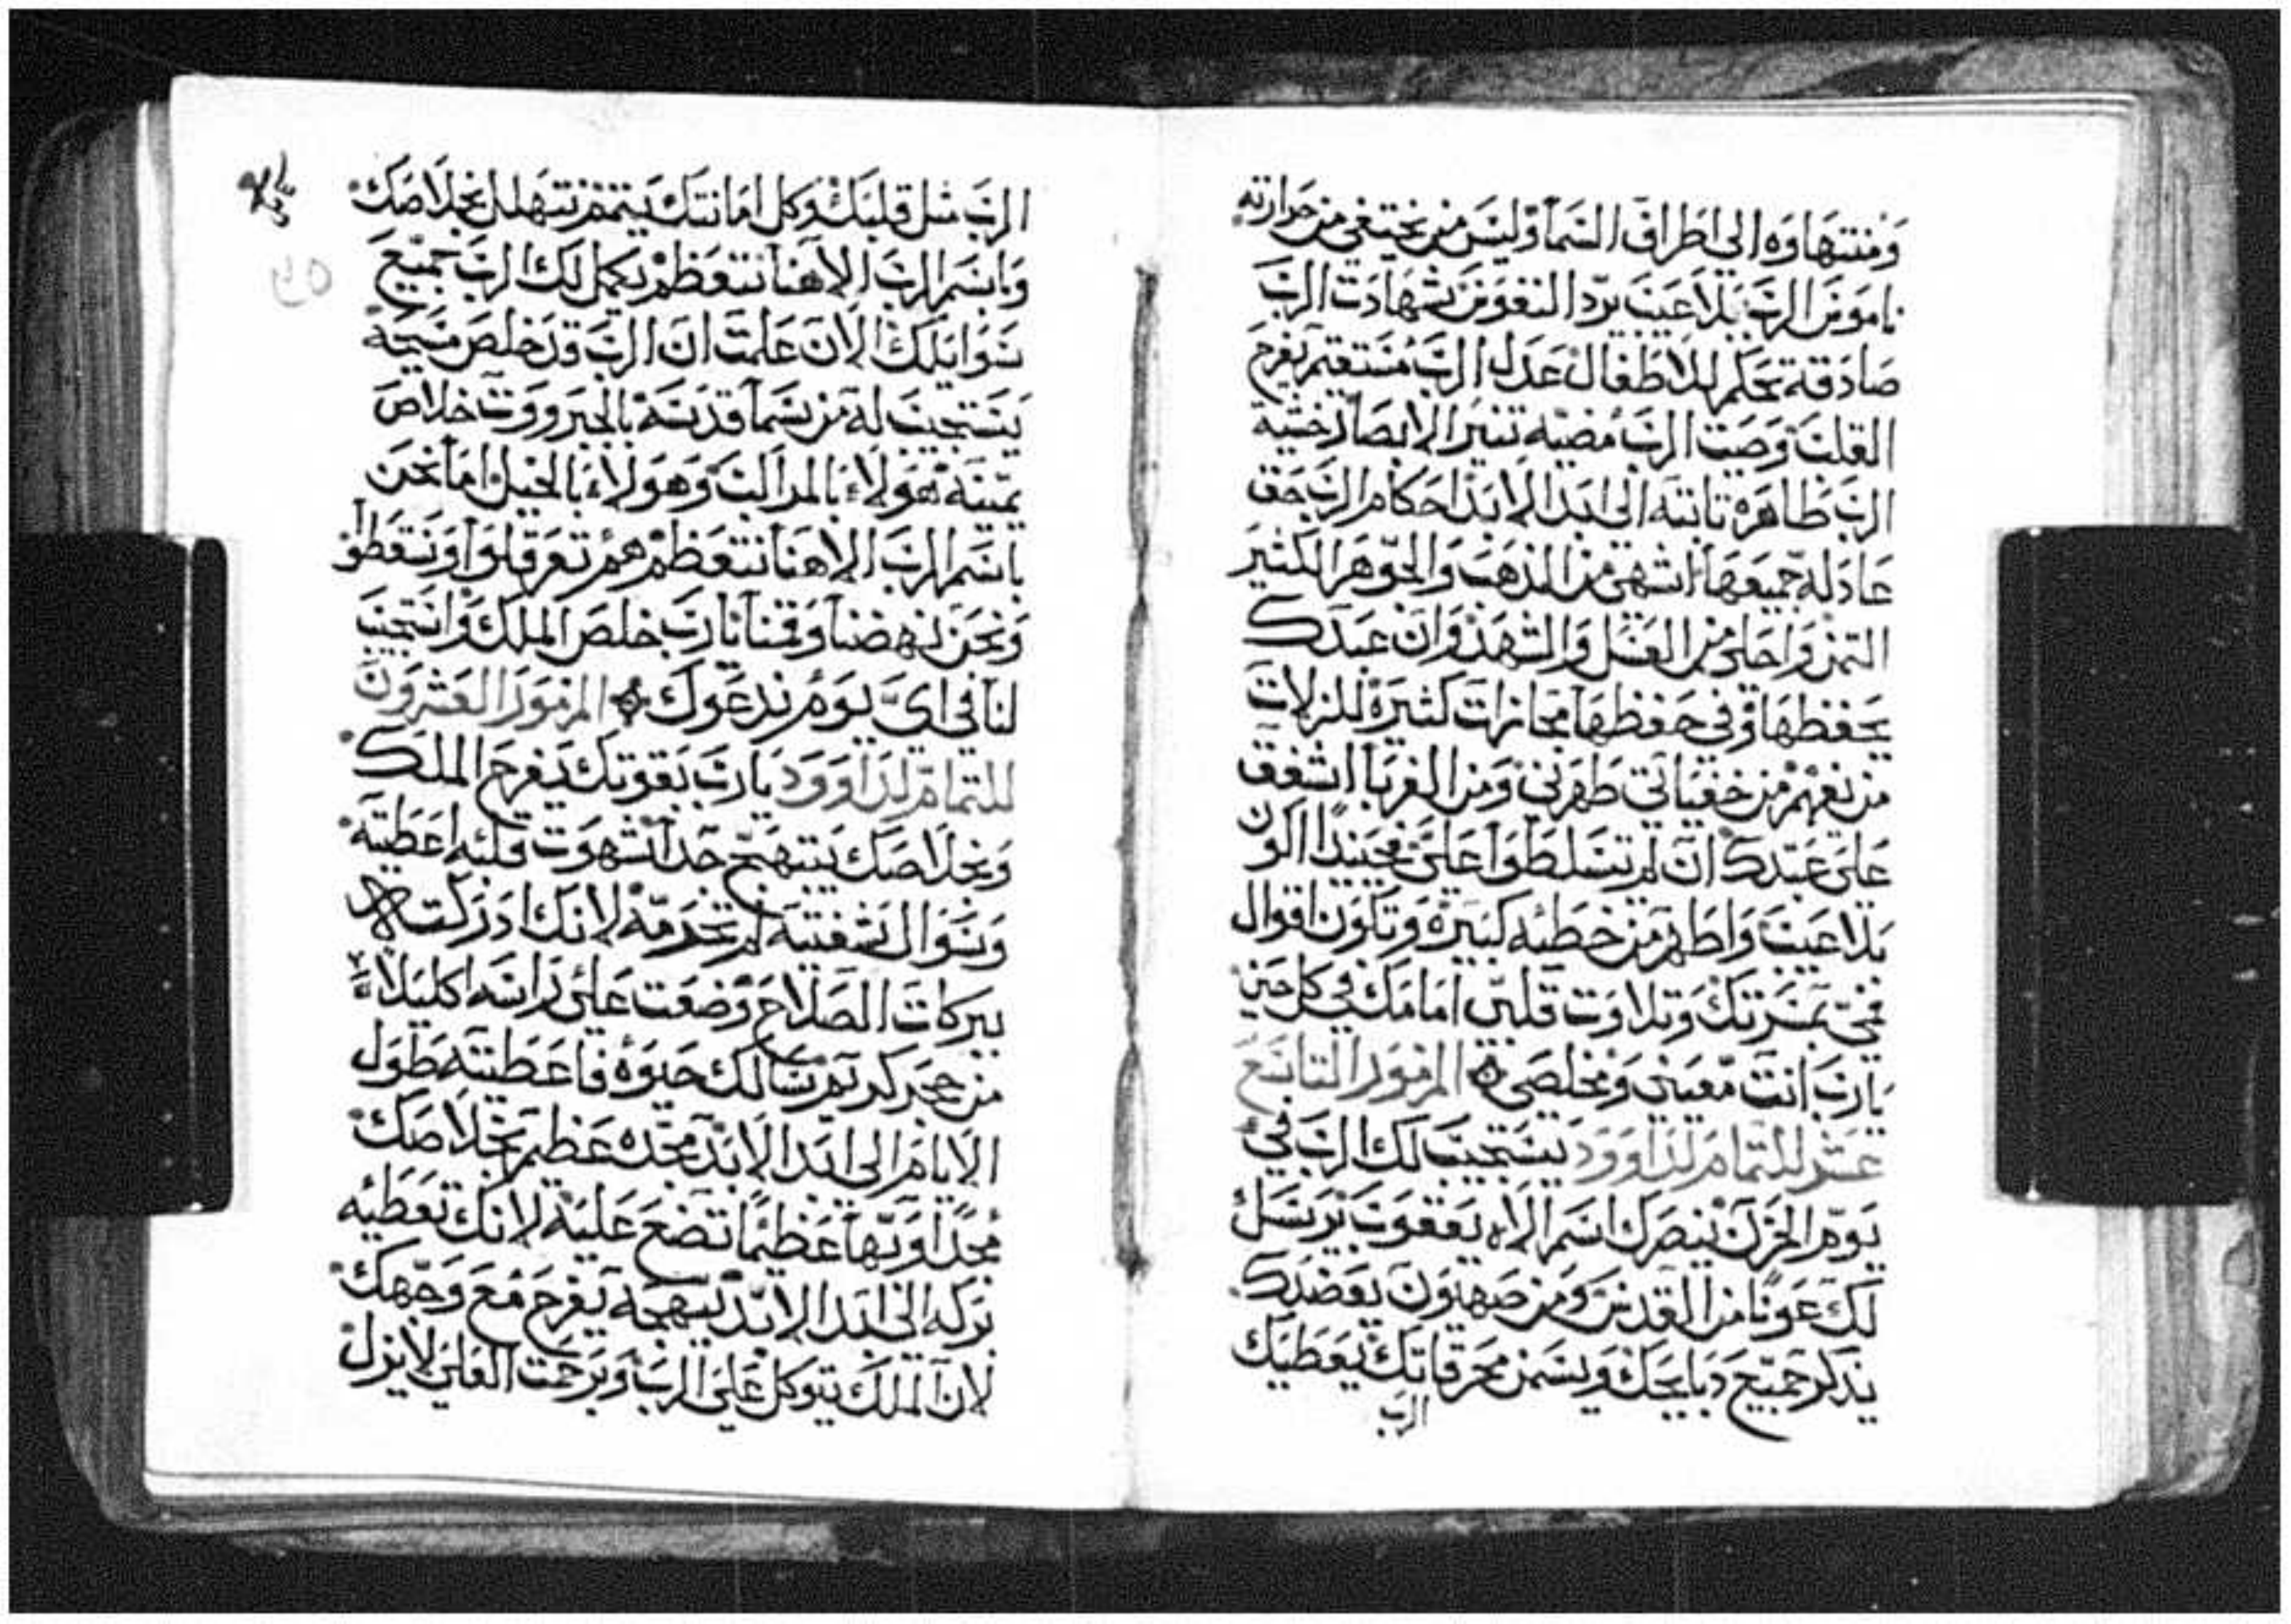 ومنتهاوه الي اطراف السما وليس من يختفي من حرارته
ناموس الرب بلا عيب يرد النفوس شهادت الرب
صادقة تحكم للاطفال عدل الرب مستقيم يفرح
القلب وصيت الرب مضيه تنير الابصار خشية
الرب طاهره تابته الي ابد الابد احكام الرب حق
عادله جميعها اشهي من الدهب والجوهر الكثير
التمن واحلي من العسل والشهد وان عبدك
يحفظها وفي حفظها مجازات كثيرة للزلات
من يفهم من خفياتي طهرني ومن الغربا اشفق
علي عبدك ان لم تسلطوا علي فحينيدا اكون
بلا عيب واطهر من خطيه كبيره وتكون اقوال
فمي بمسرتك وتلاوت قلبي امامك في كل حين
يارب انت معيني ومخلصي المزمور التاسع
عشر للتمام لداوود يستجيب لك الرب في
يوم الحزن ينصرك اسم الاه يعقوب يرسل
لك عونا من القدس ومن صهيون يعضدك
يدكر جميع دبايحك ويسمن محرقاتك يعطيك
الرب
الرب متل قلبك وكل امانتك يتمم نتهلل بخلاصك
وباسم الرب الاهنا نتعظم يكمل لك الرب جميع
سوايلك الان علمت ان الرب قد خلص مسيحه
يستجيب له من سما قدسه بالجبروت خلاص
يمينه هولاء بالمراكب وهولاء بالخيل اما نحن
باسم الرب الاهنا نتعظم هم تعرقلوا وسقطوا
ونحن نهضنا وقمنا يارب خلص الملك واستجيب
لنا في اي يوم ندعوك المزمور العشرون
للتمام لداوود يارب بقوتك يفرح الملك
وبخلاصك يبتهج جدا شهوت قلبه اعطيته
وسوال شفتيه لم تحرمه لانك ادركته
ببركات الصلاح وضعت علي راسه اكليلا
من حجر كريم سالك حيوه فاعطيته طول
الايام الي ابد الابد مجده عظيم بخلاصك
مجدا وبها عظيما تضع عليه لانك تعطيه
بركه الي ابد الابد تبهجه بفرح مع وجهك
لان الملك يتوكل علي الرب وبرحمت العلي لا يزل